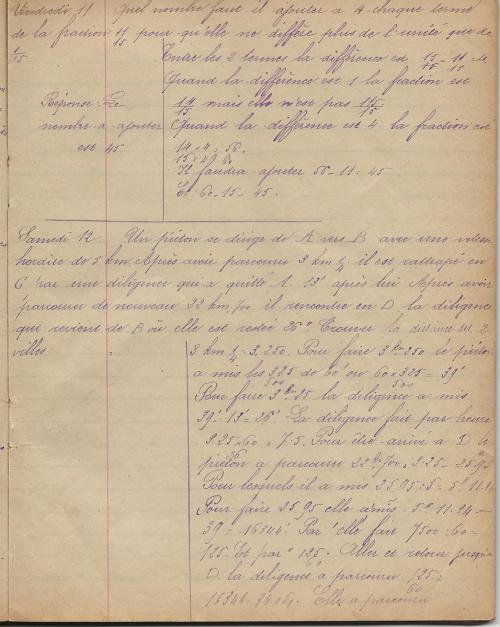 Vendredi 11. Quel nombre faut il ajouter à 4 chaque terme
de la fraction 11/15 pour qu'elle ne diffère plus de l'unité que de
1/15
Entre les 2 termes la différence est 15/15 - 11/15 = 4
Quand la différence est 1 la fraction est
Réponse: Le
nombre a ajouter
est 45
14/15 mais elle n'est pas
Quand la différence est 4 la fraction est
14 × 4 = 56.
15 × 4 60
Il faudra ajouter 56 - 11 = 45
Et 60 - 15 = 45.
Samedi 12. Un piéton se dirige de A vers B avec une vitesse
horaire de 5 km Après avoir parcouru 3 km 1/4 il est rattrapé en
C par une diligence qui a quitté A 13' après lui Après avoir
parcouru de nouveau 22 km,700 il rencontre en D la diligence
qui revient de B où elle est restée Trouver la distance des 2
villes
3 km 1/4 = 3.250. Pour faire 3km 250 le piéton
a mis les 325/500 de 60' ou 60 × 325/500 = 39'
Pour faire 3km 25 la diligence a mis
39' - 13' = 26' La diligence fait par heure
3.25 × 60/26 = 7.5. Pour être arrivé à D le
piéton a parcouru 22km.700 + 3.25 = 25.95
Pour lesquels il a mis 25.95 : 5 = 5h 11.24
Pour faire 25.95 elle a mis 5h 11.24 -
39 = 16344' Par ' elle fait 7500 : 60 =
125. Et par " 125/60. Aller et retour jusqu'à
D la diligence a parcouru 125/60 ×
16344 = 34.05. Elle a parcouru